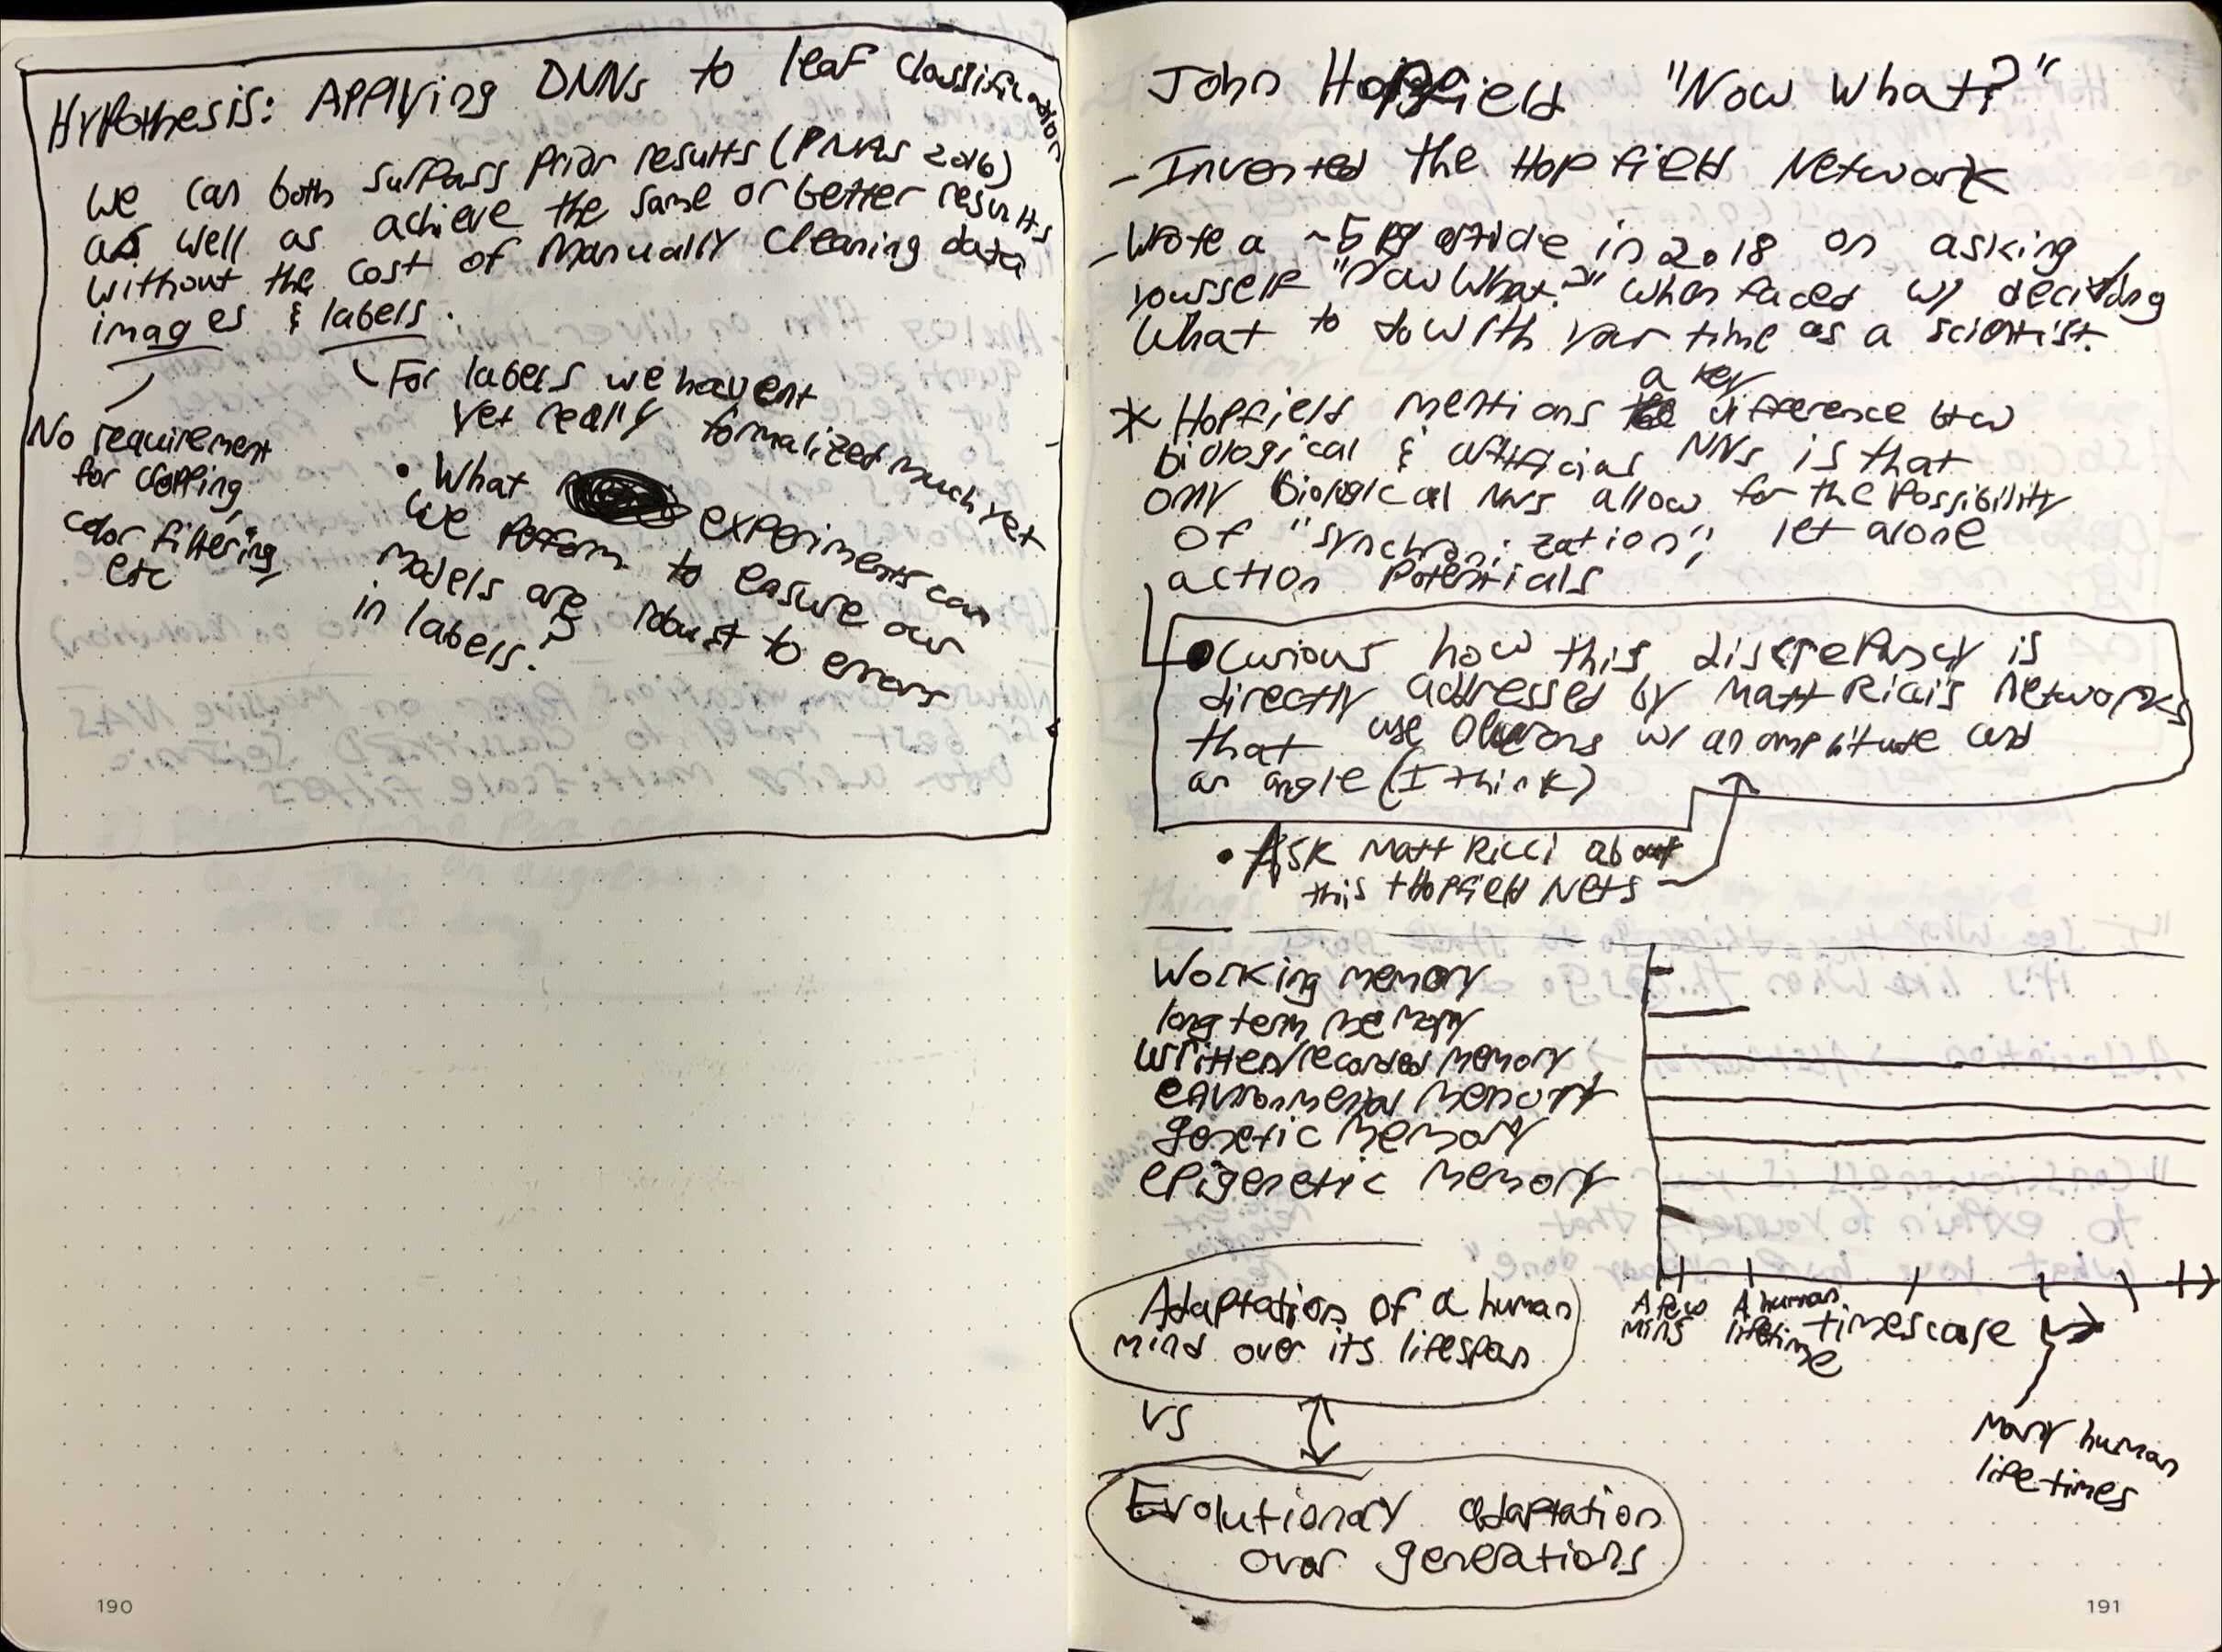 Hypothesis: Applying DNNs to leaf classification
we can both surpass prior results (PNAS 2016)
as well as achieve the same or better results
without the cost of manually cleaning data
images & labels.
No requirement
for cropping,
color filtering,
etc
For labels we havent
yet really formalized much yet
• What experiments can
we perform to easure our
models are robust to errors
in labels?
190
John Hopfield "Now What?"
- Invented the Hopfield Network
- Wrote a ~5 pg article in 2018 on asking
yourself "Now What?" when faced w/ deciding
What to do with your time as a scientist.
a key
* Hopfield mentions difference btw
biological & artificial NNs is that
only biological NNs allow for the possibility
of "synchronization", let alone
action potentials
• Curious how this discrepancy is
directly addressed by Matt Ricci's networks
that use w/ an amplitude and
an angle (I think)
• Ask Matt Ricci about
this + Hopfield Nets
Working memory
long term memory
written/recorded memory
environmental memory
genetic memory
epigenetic memory
A few
mins
A human
lifetime
timescale
Many human
lifetimes
Adaptation of a human
mind over its lifespan
vs
Evolutionary adaptation
over generations
191